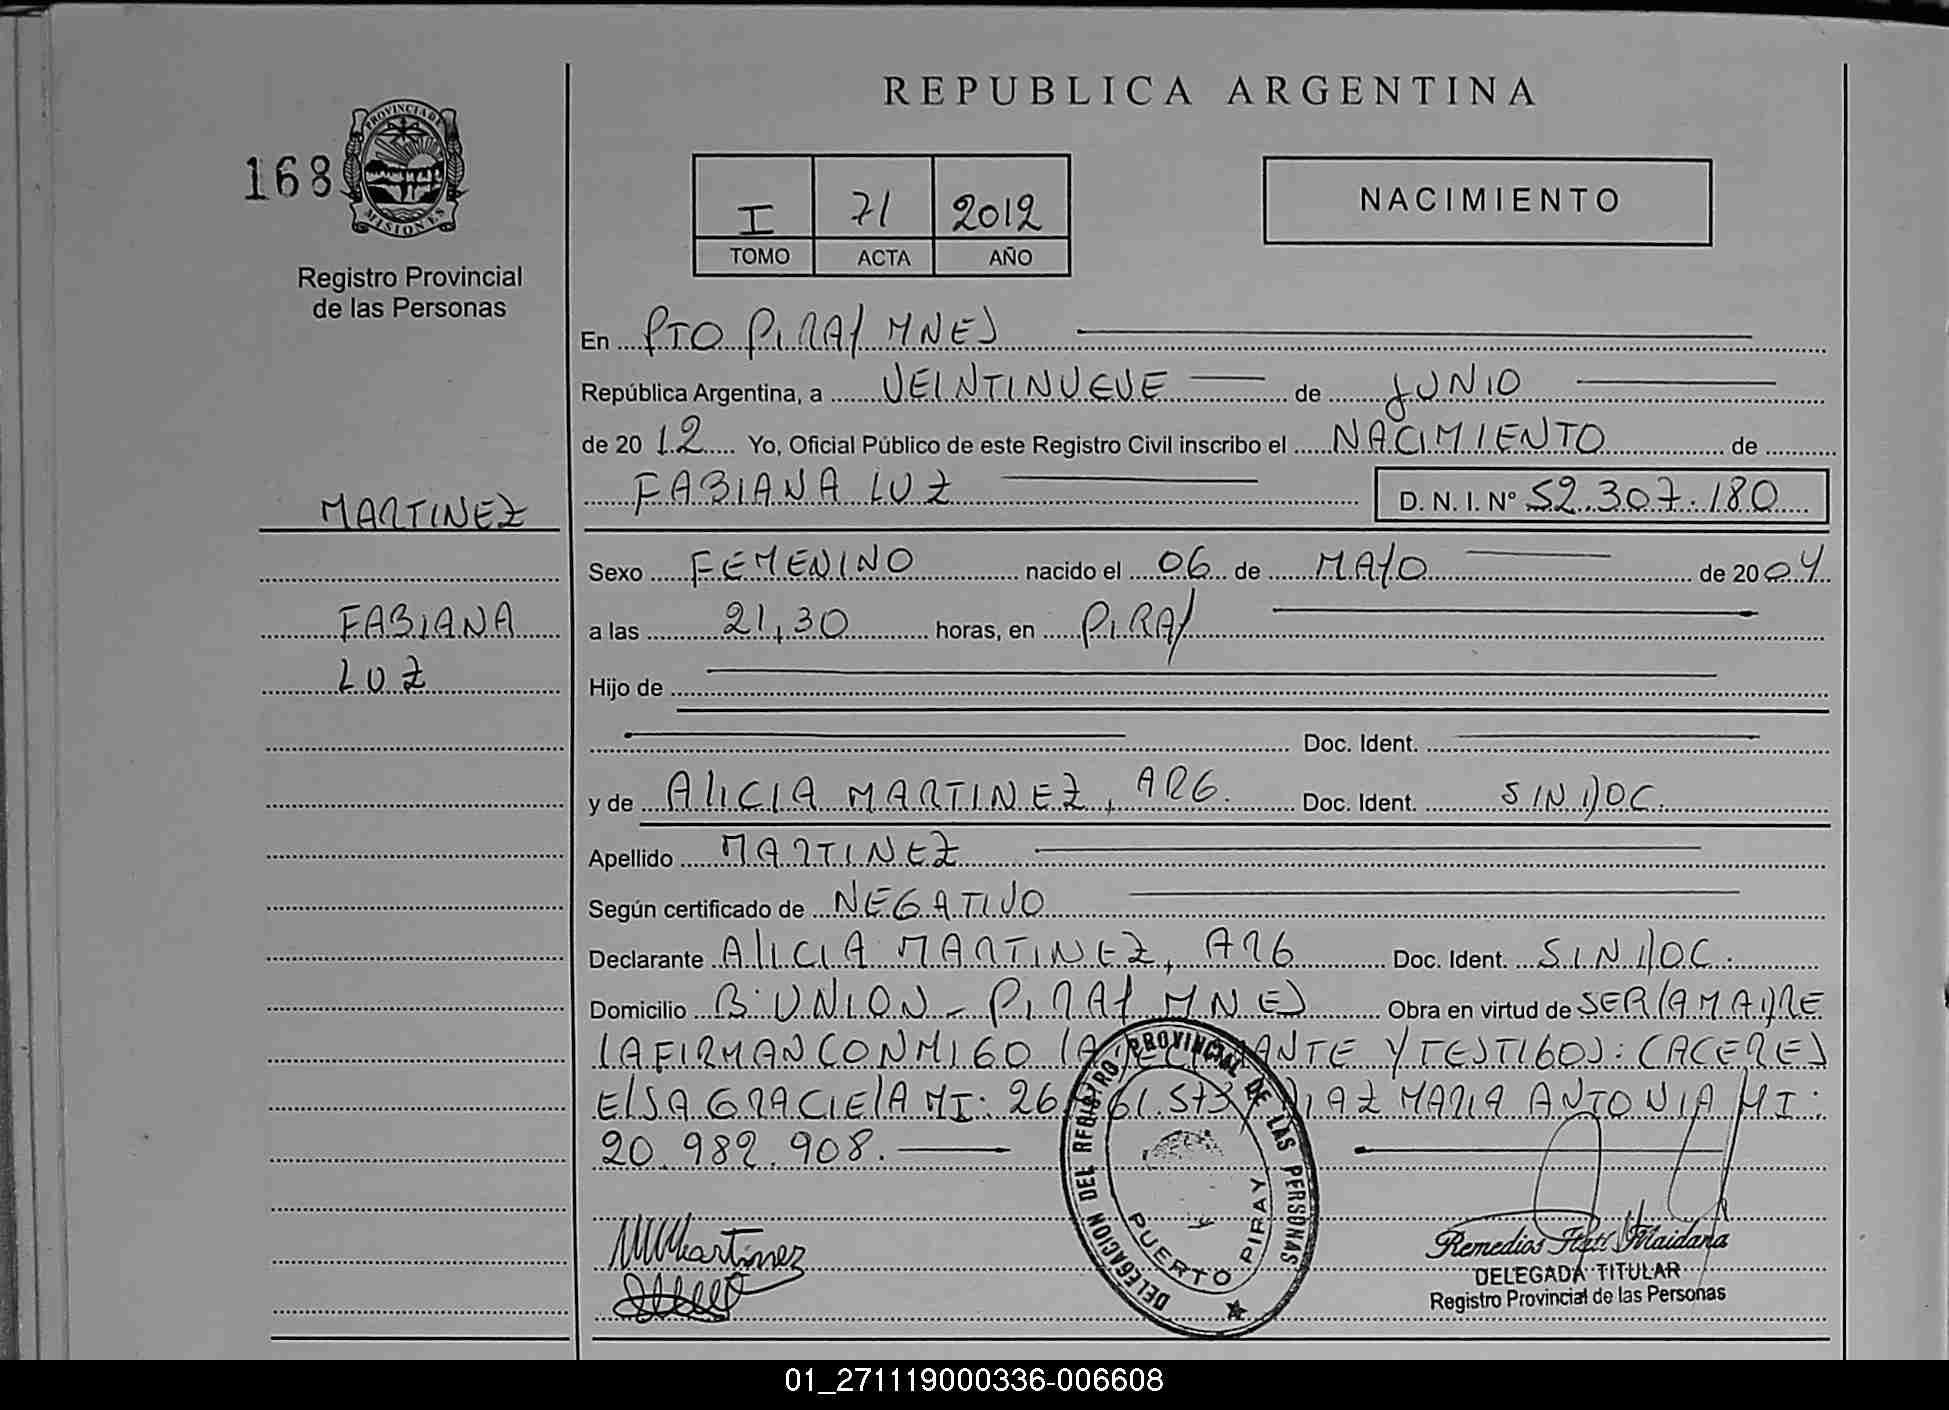 REPUBLICA ARGENTINA
168
PROVINCIA DE
MISIONES
Registro Provincial
de las Personas
I 71 2012
TOMO ACTA AÑO
NACIMIENTO
En PTO PIRAY MNES
República Argentina, a VEINTINUEVE de JUNIO
de 2012 Yo, Oficial Público de este Registro Civil inscribo el NACIMIENTO de
FABIANA LUZ D. N. I. Nº 52.307.180
MARTINEZ
FABIANA
LUZ
Sexo FEMENINO nacido el 06 de MAYO de 2004
a las 21,30 horas, en PIRAY
Hijo de
Doc. Ident.
y de ALICIA MARTINEZ, ARG. Doc. Ident. SIN DOC.
Apellido MARTINEZ
Según certificado de NEGATIVO
Declarante ALICIA MARTINEZ, ARG Doc. Ident. SIN DOC.
Domicilio Bº UNION - PIRAY MNES Obra en virtud de SER LA MADRE
LA FIRMAN CONMIGO LA ANTE Y TESTIGOS: CACERES
ELSA GRACIELA MI: 26 61.573 DIAZ MARIA ANTONIA MI:
20.982.908.
DELEGACION DEL REGISTRO PROVINCIAL DE LAS PERSONAS
PUERTO PIRAY
Martinez
Remedios Itatí Maidana
DELEGADA TITULAR
Registro Provincial de las Personas
01_271119000336-006608